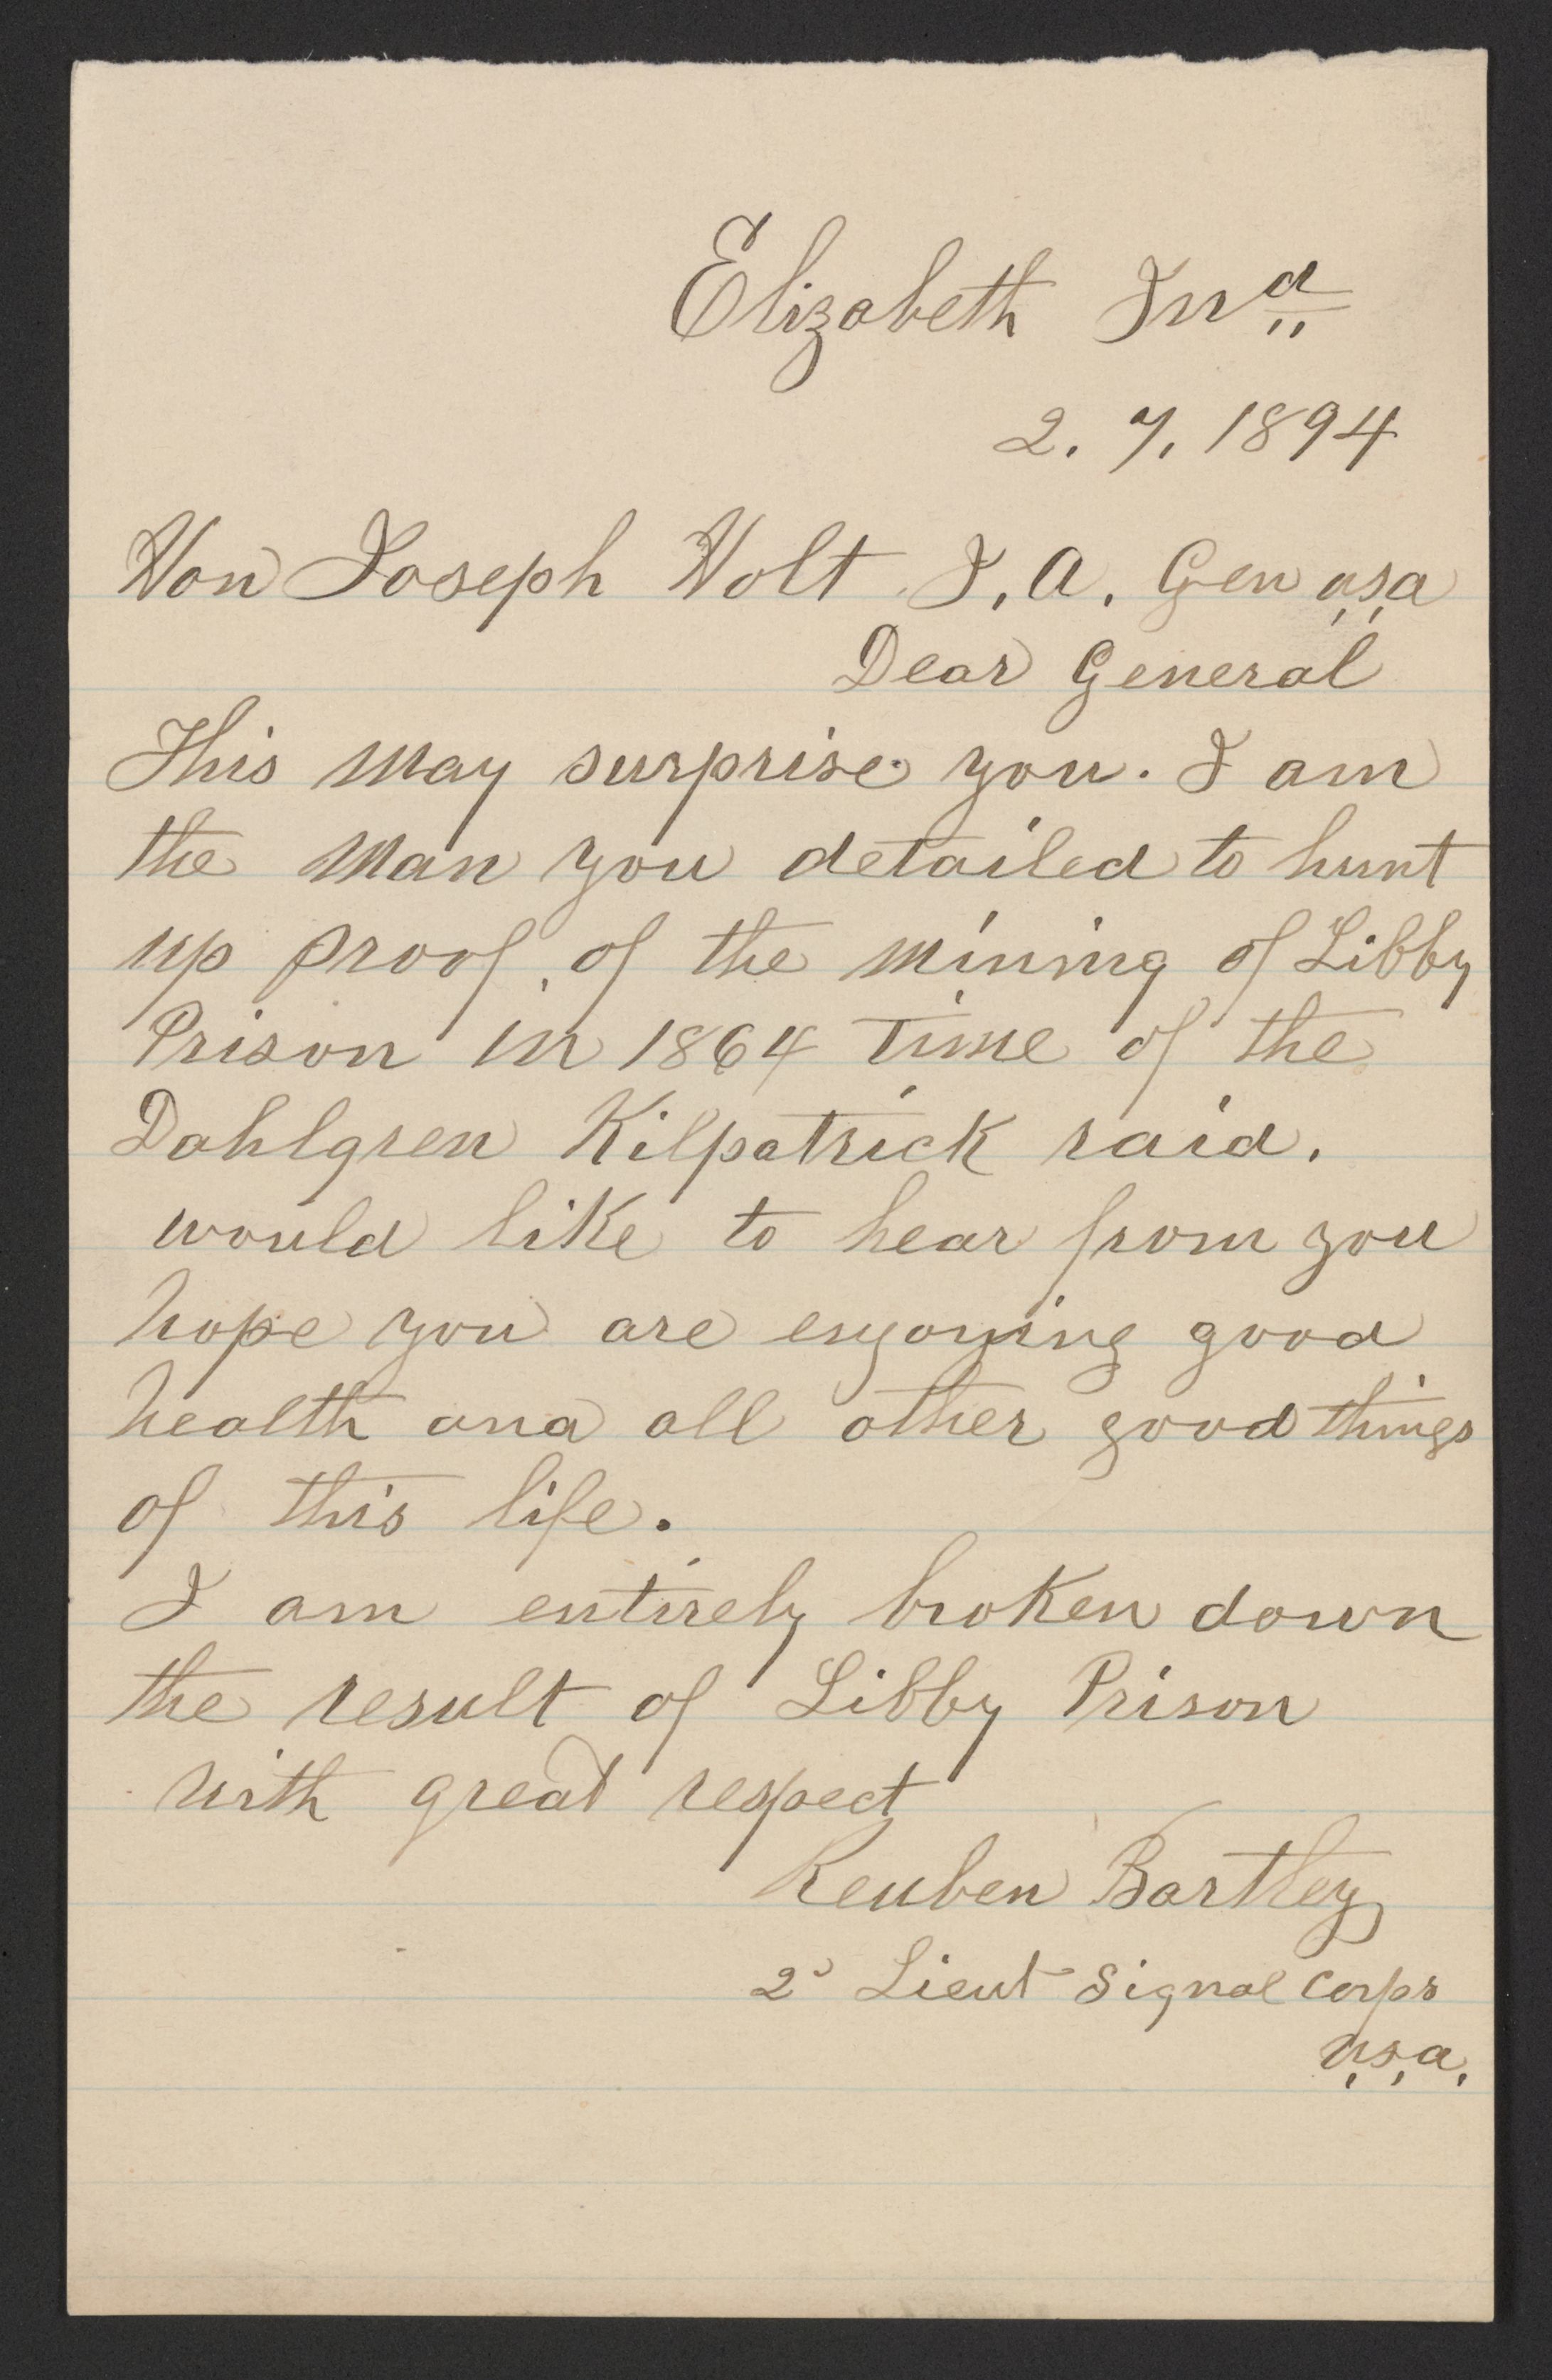 Elizabeth Ind
2. 7. 1894
Hon Joseph Holt J. A. Gen U.S.A
Dear General
This may surprise you. I am
the man you detailed to hunt
up proof of the mining of Libby
Prison in 1864 time of the
Dahlgren Kilpatrick raid.
would like to hear from you
hope you are enjoying good
health and all other good things
of this life.
I am entirely broken down
the result of Libby Prison
with great respect
Reuben Bartley
2d Lieut Signal Corps
U.S.A.